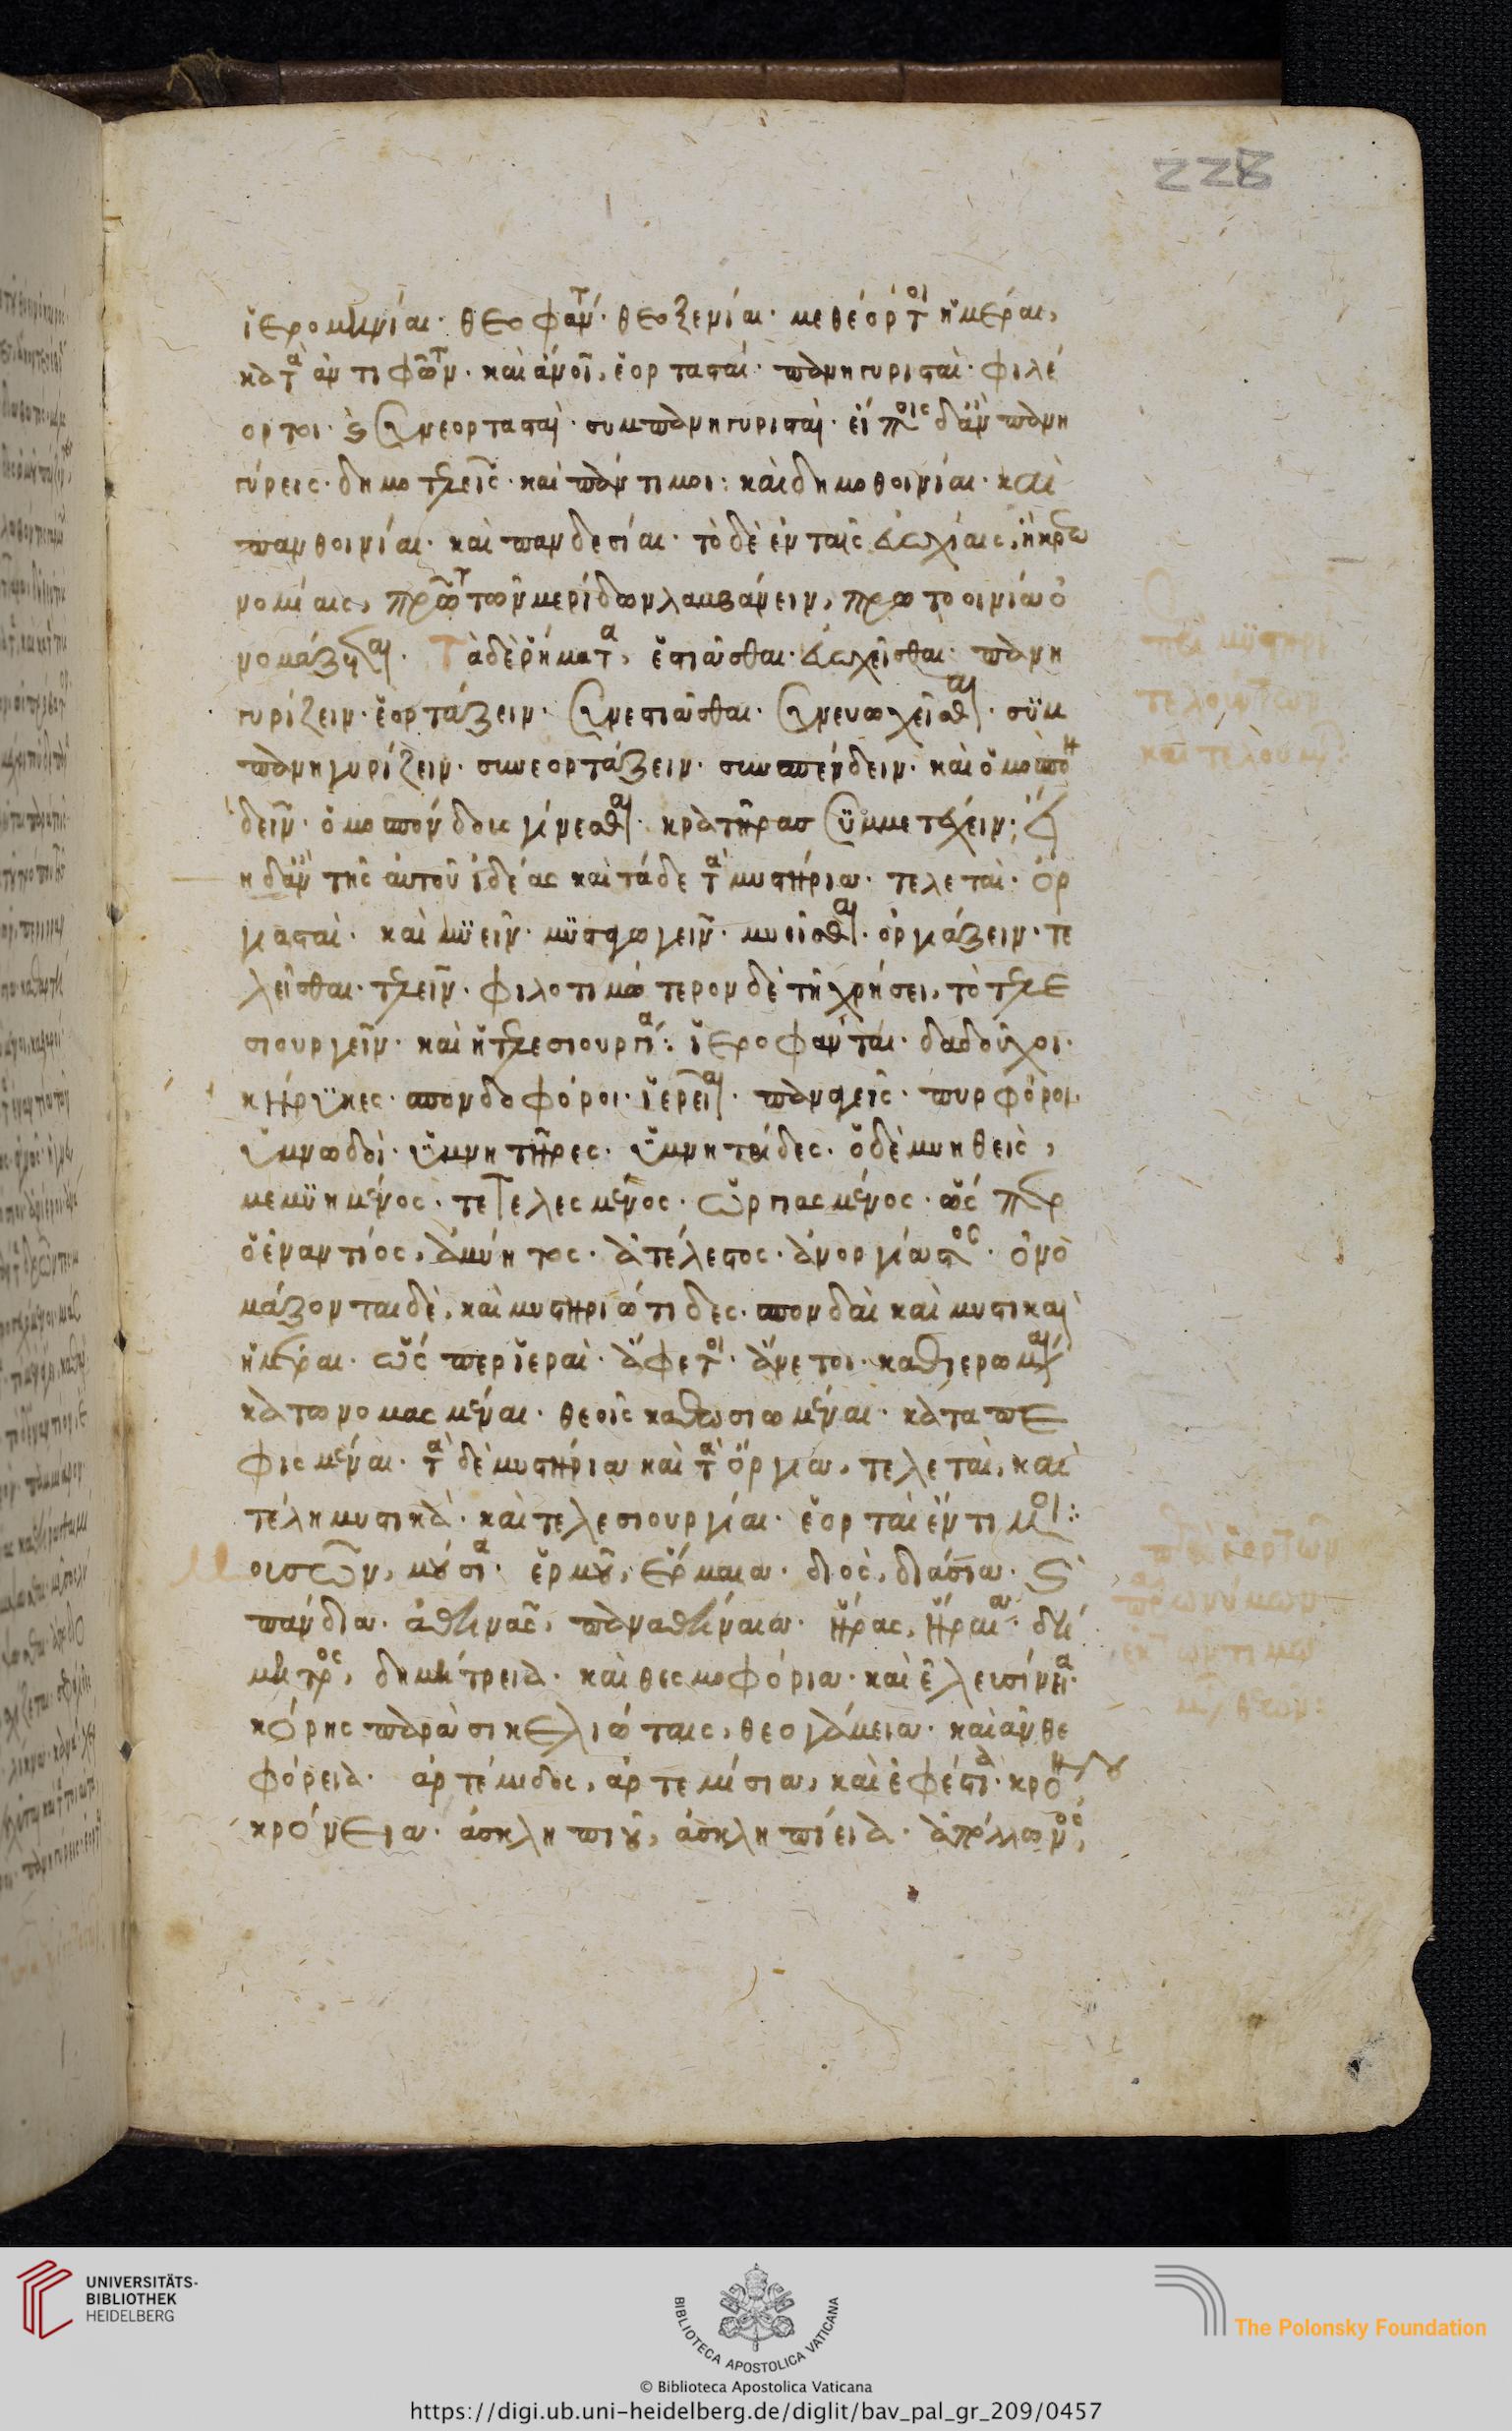 228
ἱερομηνίαι· θεοφάντ· θεοξενίαι· μεθέορτοι ἡμέραι,
κατὰ ἀντιφῶντ· καὶ ἄνοι, ἑορτασταί· πανηγυρισταί· φιλέ
ορτοι· συνεορτασταί· συμπανηγυρισταί· εἴποις δἂν πανη
γύρεις· δημοτελεῖς· καὶ πάντιμοι: καὶ δημοθοινίαι· καὶ
πανθοινίαι· καὶ πανδεσίαι· τὸ δὲ ἐν ταῖς εὐωχίαις, ἢ κρεω
νομίαις, πρῶτ τῶν μερίδων λαμβάνειν, πρωτοοινίαν ὀ
νομάζεται. Τὰ δὲ ῥήματα, ἑστιᾶσθαι· εὐωχεῖσθαι· πανη
γυρίζειν· ἑορτάζειν· συνεστιᾶσθαι· συνευωχεῖσθαι· συμ
πανηγυρίζειν· συνεορτάζειν· συσπένδειν· καὶ ὁμοσπον
δεῖν· ὁμοσπόνδοις γίνεσθαι· κρατῆρας συμμετέχειν·
η δἂν τῆς αὐτοῦ ἰδέας καὶ τάδε τὰ μυστήρια· τελεταί· ὀρ
γιασταί· καὶ μυεῖν· μυσταγωγεῖν· μυεῖσθαι· ὀργιάζειν· τε
λεῖσθαι· τελεῖν· φιλοτιμώτερον δὲ τῇ χρήσει, τὸ τελε
σιουργεῖν· καὶ ἡ τελεσιουργία: ἱεροφάνται· δαδοῦχοι·
κήρυκες· σπονδοφόροι· ἱέρειαι· παναγεῖς· πυρφόροι·
ὑμνωδοί· ὑμνητῆρες· ὑμνητρίδες· ὁ δὲ μυηθεὶς,
μεμυημένος· τετελεσμένος· ὠργιασμένος· ὥσπερ
ὁ ἐναντίος, ἀμύητος· ἀτέλεστος· ἀνοργίαστος· ὀνο
μάζονται δὲ, καὶ μυστηριώτιδες· σπονδαὶ καὶ μυστικαὶ
ἡμέραι· ὥσπερ ἱεραὶ· ἄφετοι· ἄνετοι· καθιερωμέναι
κατωνομασμέναι· θεοῖς καθωσιωμέναι· καταπε
φισμέναι· τὰ δὲ μυστήρια καὶ τὰ ὄργια, τελεταὶ, καὶ
τέλη μυστικὰ· καὶ τελεσιουργίαι· ἑορταὶ ἔντιμοι:
Μουσῶν, μουσία· ἑρμοῦ, ἕρμαια· διὸς, διάσια·
πάνδια· ἀθηνᾶς, παναθήναια· ἥρας, ἥραια· δή
μητρος, δημήτρεια· καὶ θεσμοφόρια· καὶ ἐλευσίνεια·
κόρης παρὰ σικελιώταις, θεογάμεια· καὶ ἀνθε
φόρεια· ἀρτέμιδος, ἀρτεμίσια, καὶ ἐφέσια· κρόνου
κρόνεια· ἀσκληπιοῦ, ἀσκληπιεῖα· ἀπόλλωνος,
περὶ μυστηρί
τελούντων
καὶ τελουμ:
περὶ ἑορτῶν
παρωνύμων
ἐκ τῶν τιμω
μ θεῶν:
UNIVERSITÄTS-
BIBLIOTHEK
HEIDELBERG
BIBLIOTECA APOSTOLICA VATICANA
The Polonsky Foundation
© Biblioteca Apostolica Vaticana
https://digi.ub.uni-heidelberg.de/diglit/bav_pal_gr_209/0457